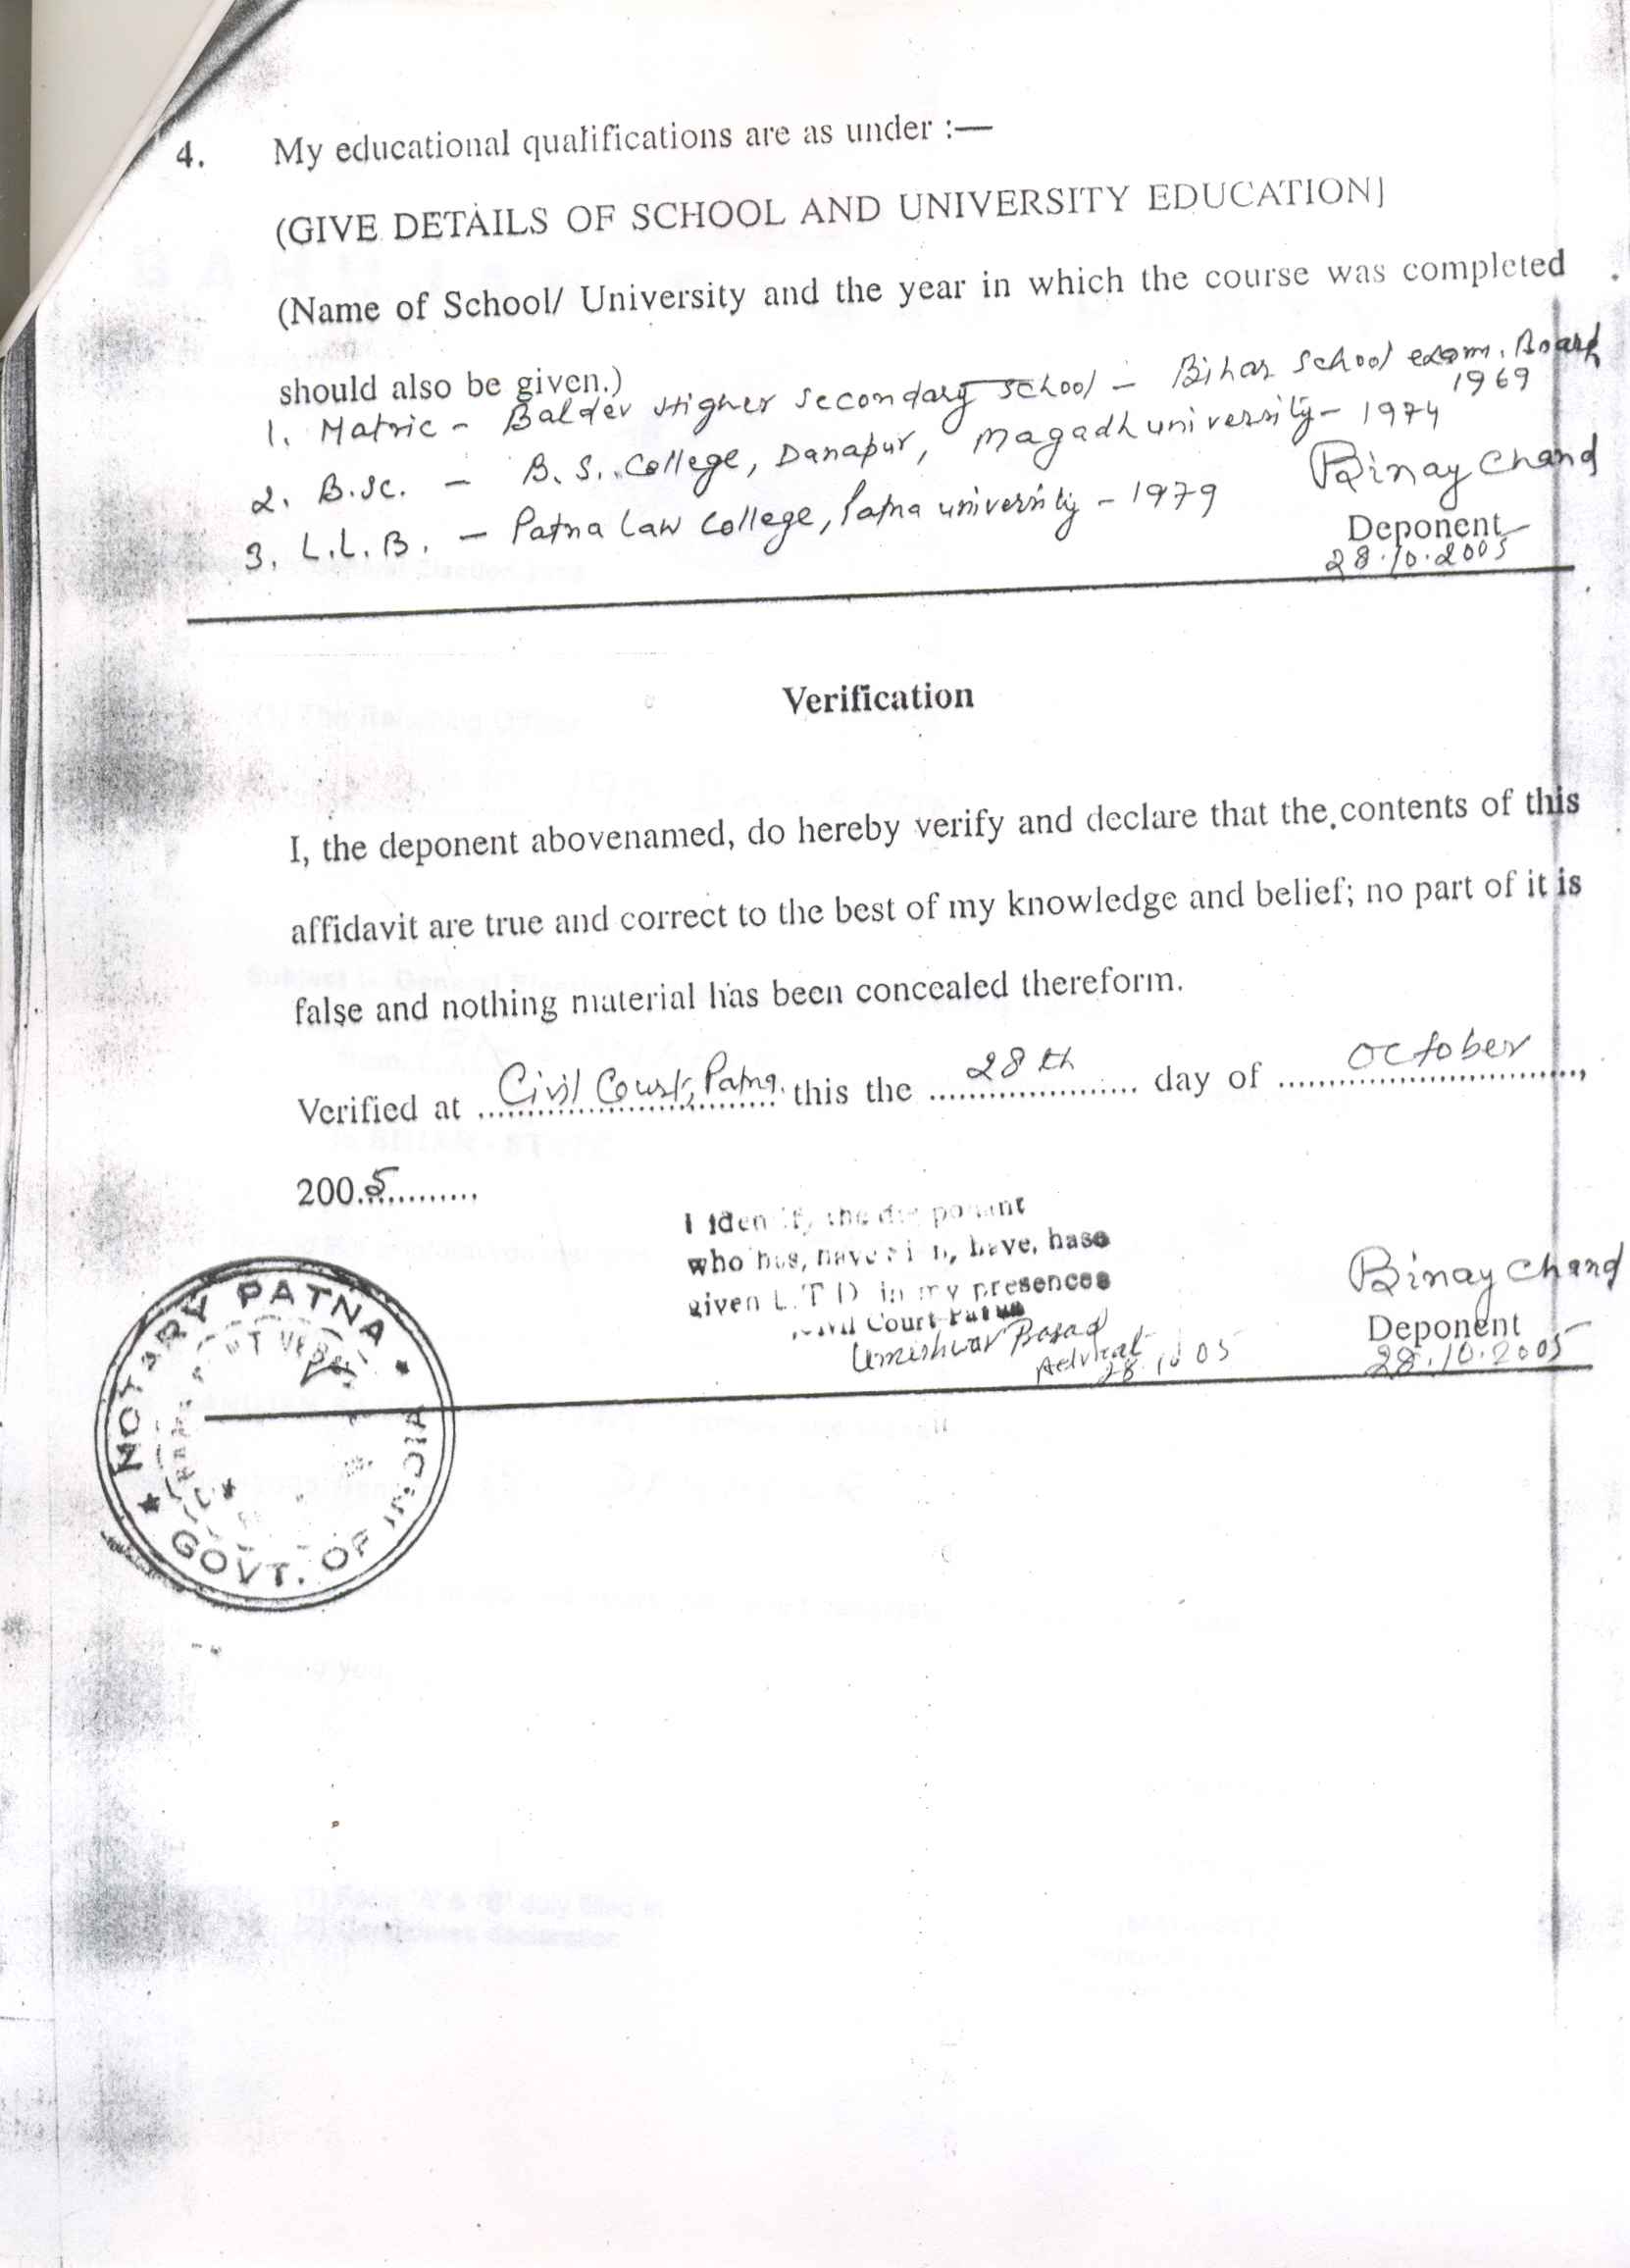 4. My educational qualifications are as under :—
(GIVE DETAILS OF SCHOOL AND UNIVERSITY EDUCATION)
(Name of School/ University and the year in which the course was completed
should also be given.)
1. Matric - Baldev Higher Secondary School - Bihar School exam. Board
1969
2. B.Sc. - B.S. College, Danapur, Magadh university - 1974
3. L.L.B. - Patna Law College, Patna university - 1979
Binay Chand
Deponent
28.10.2005
Verification
I, the deponent abovenamed, do hereby verify and declare that the contents of this
affidavit are true and correct to the best of my knowledge and belief; no part of it is
false and nothing material has been concealed thereform.
Verified at Civil Court, Patna. this the 28th day of October,
2005
I identify the
who has, have, have, hase
given L.T.I) in my presences
Civil Court Patna
Umeshwar Prasad
Advocat
28.10.05
Binay Chand
Deponent
28.10.2005
NOTARY PATNA
GOVT. OF INDIA